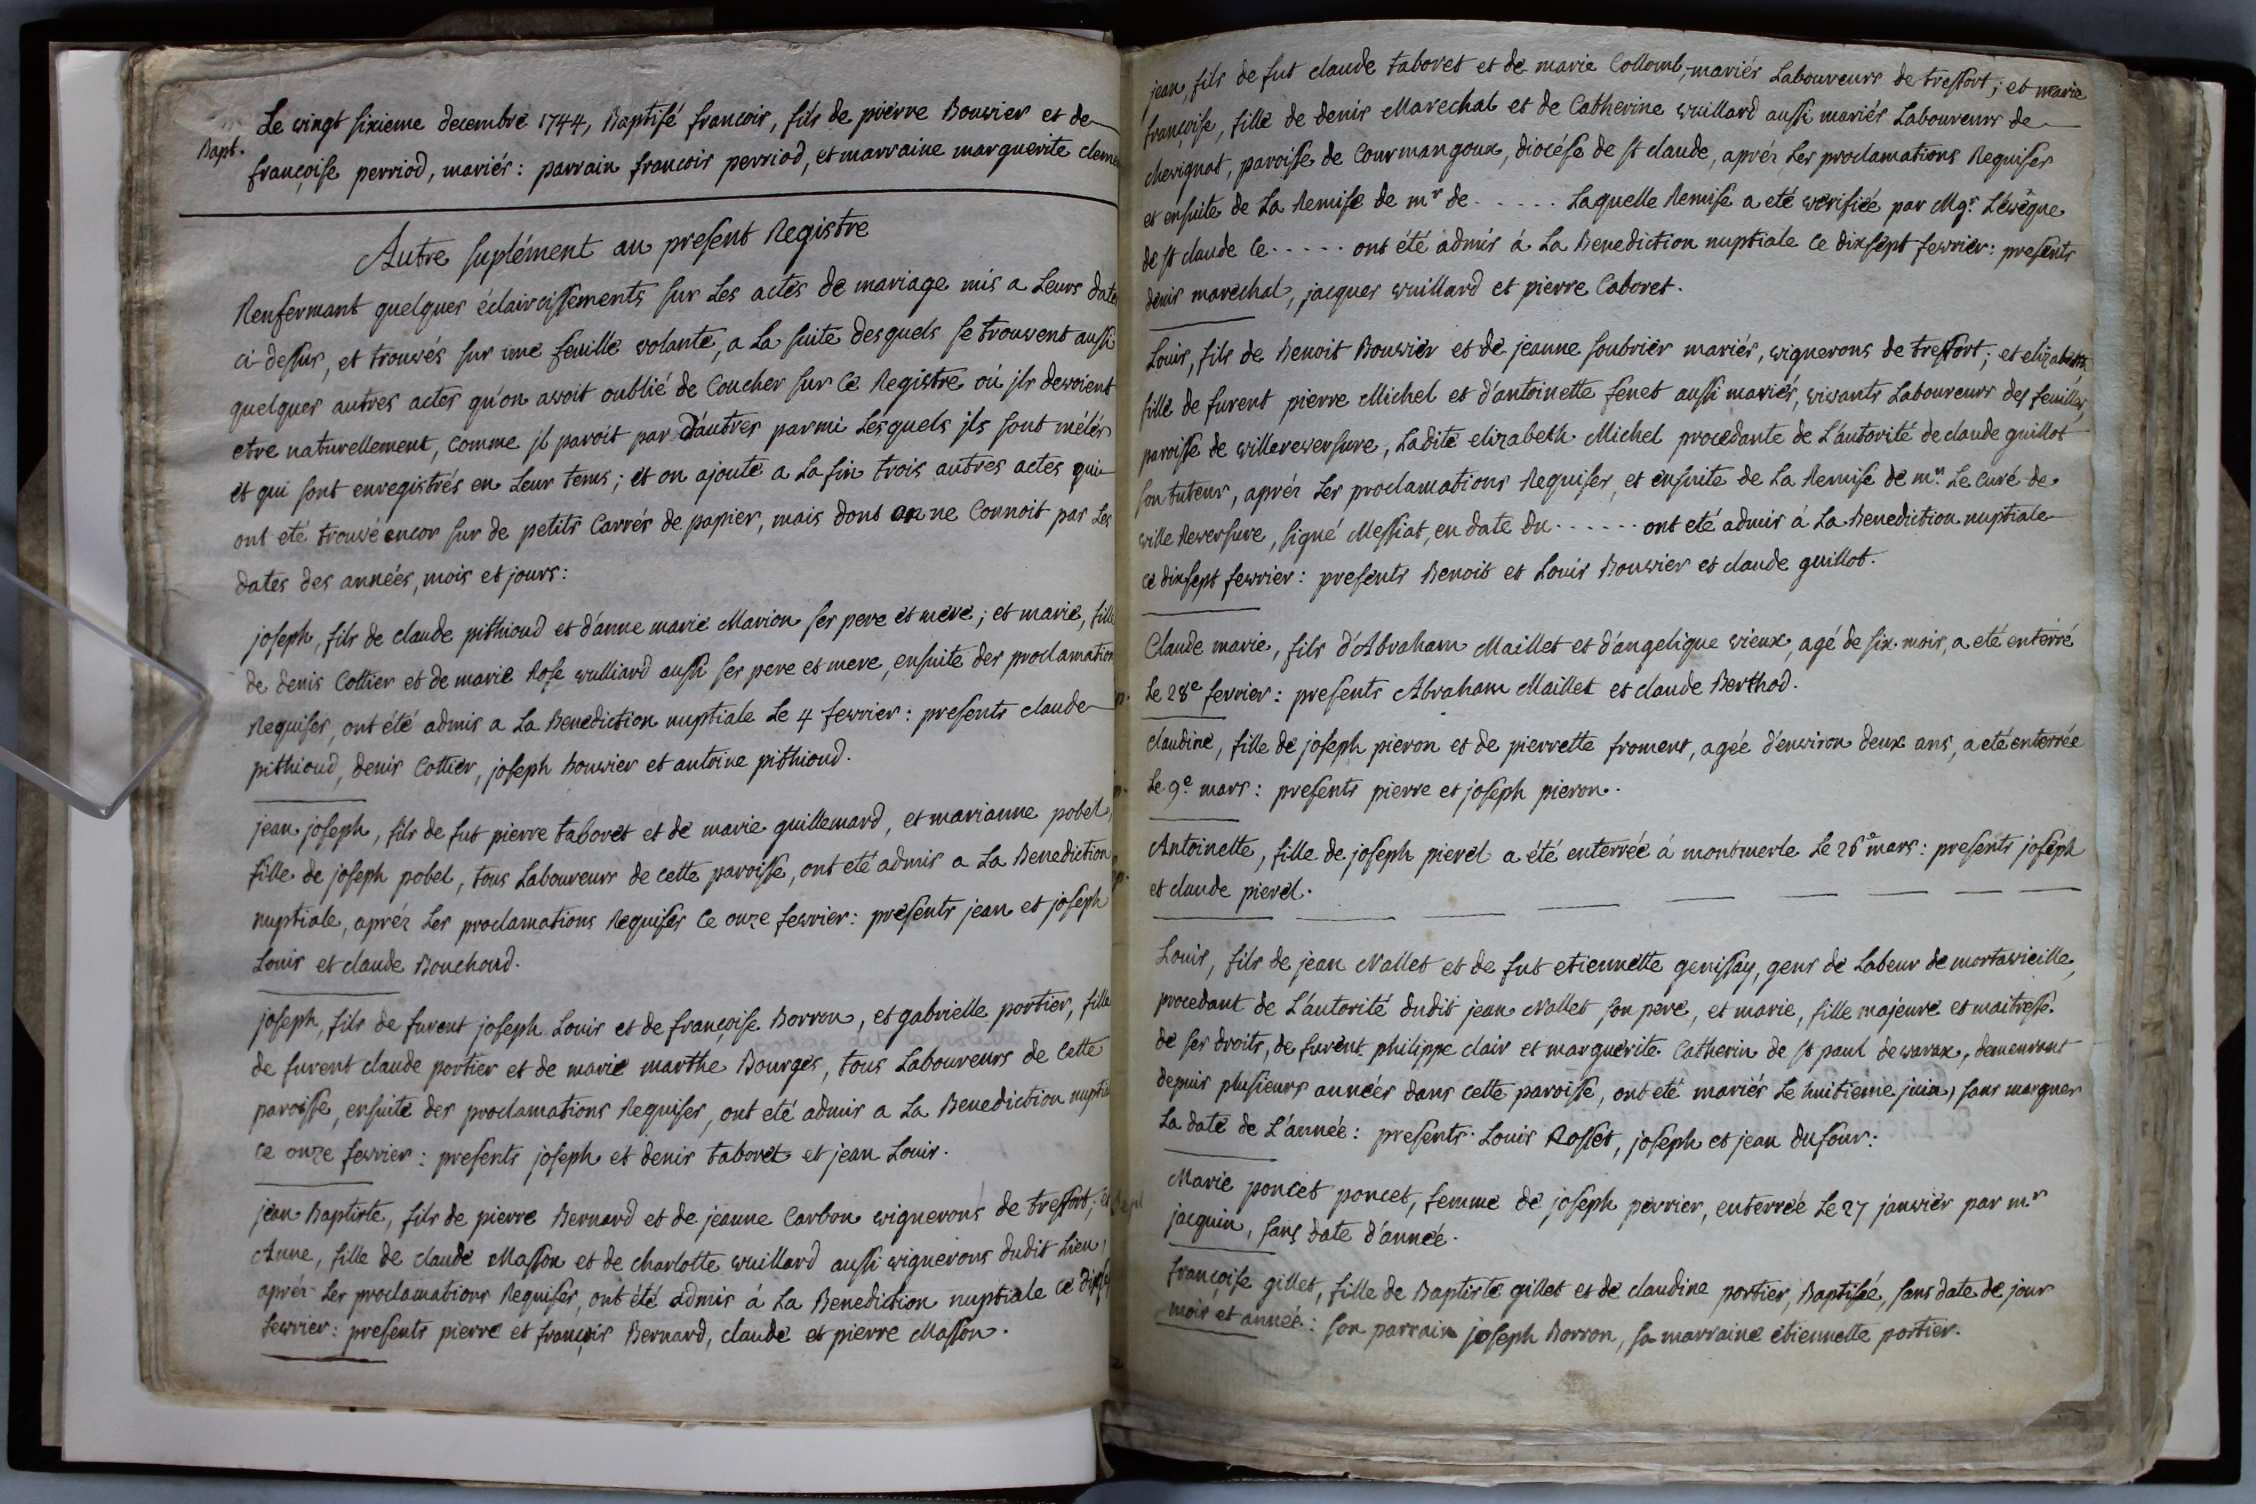 Le vingt sixieme decembre 1744, Baptisé françois, fils de pierre Bouvier et de
Bapt.
françoise perriod, mariés : parrain francois perriod, et marraine marguerite cleme
Autre suplément au present Registre
Renfermant quelques éclaircissements sur Les actes de mariage mis a Leurs date
ci dessus, et trouvés sur une feuille volante, a La suite desquels se trouvent aussi
quelques autres actes qu'on avoit oublié de Coucher sur Ce Registre où jls devoient
etre naturellement, Comme jl paroit par d'autres parmi Lesquels jls sont mélés
et qui sont enregistrés en Leur tems ; et on ajoute a La fin trois autres actes qui
ont eté trouvé encor sur de petits Carrés de papier, mais dont on ne Connoit pas Les
dates des années, mois et jours :
joseph, fils de claude pithioud et d'anne marie Marion ses pere et mere ; et marie, fille
de denis Cottier et de marie Rose vulliard aussi ses pere et mere, ensuite des proclamation
Requises, ont été admis a La Benediction nuptiale Le 4 fevrier : presents claude
pithioud, denis Cottier, joseph bouvier et antoine pithioud.
jean joseph, fils de fut pierre taboret et de marie guillemard, et marianne pobel,
fille de joseph pobel, tous Laboureurs de cette paroisse, ont eté admis a La Benediction
nuptiale, aprés Les proclamations Requises Ce onze fevrier : presents jean et joseph
Louis et claude Bouchoud.
joseph, fils de furent joseph Louis et de françoise Borron, et gabrielle portier, fille
de furent claude portier et de marie marthe Bourges, tous Laboureurs de Cette
paroisse, ensuite des proclamations Requises, ont eté admis a La Benediction nuptia
ce onze fevrier : presents joseph et denis taboret et jean Louis.
jean Baptiste, fils de pierre Bernard et de jeanne Carbon vignerons de tressort ; et
Anne, fille de claude Masson et de charlotte vuillard aussi vignerons dudit Lieu,
aprés Les proclamations Requises, ont été admis à La Benediction nuptiale ce dixse
fevrier : presents pierre et françois Bernard, claude et pierre Masson.
jean, fils de fut claude taboret et de marie Collomb, mariés Laboureurs de tressort ; et marie
françoise, fille de denis Marechal et de Catherine vuillard aussi mariés Laboureurs de
chevignat, paroisse de Courmangoux, diocése de st claude, aprés Les proclamations Requises
et ensuite de La Remise de mr de . . . . . Laquelle Remise a eté verifiée par Mgr. L'évêque
de st claude Ce . . . . . ont été admis á La Benediction nuptiale Ce dixsept fevrier : presents
denis marechal, jacques vuillard et pierre Caboret.
Louis, fils de Benoit Bouvier et de jeanne soubrier mariés, vignerons de tressort ; et elizabeth
fille de furent pierre Michel et d'antoinette fenet aussi mariés, vivants Laboureurs des feuilles,
paroisse de villereversure, Ladite elizabeth Michel procedante de L'autorité de claude guillot
son tuteur, aprés Les proclamations Requises, et ensuite de La Remise de mr. Le Curé de
ville Reversure, signé Messiat, en date du . . . . . . ont eté admis à La Benediction nuptiale
ce dixsept fevrier : presents Benoit et Louis Bouvier et claude guillot.
Claude marie, fils d'Abraham Maillet et d'angelique vieux, agé de six mois, a eté enterré
Le 28e fevrier : presents Abraham Maillet et claude Berthod.
claudine, fille de joseph pieron et de pierrette froment, agée d'environ deux ans, a eté enterrée
Le 9e mars : presents pierre et joseph pieron.
Antoinette, fille de joseph pierel a été enterrée á montmerle Le 26e mars : presents joseph
et claude pierel.
Louis, fils de jean Nallet et de fut etiennette genissay, gens de Labeur de mortavieille,
procedant de L'autorité dudit jean Nallet son pere, et marie, fille majeure et maitresse
de ses droits, de furent philippe clair et marguerite Catherin de st paul de varax, demeurant
depuis plusieurs années dans cette paroisse, ont eté mariés Le huitieme juin, sans marquer
La date de L'année : presents Louis Rosset, joseph et jean dufour.
Marie poncet poncet, femme de joseph perrier, enterrée Le 27 janvier par mr
jacquin, sans date d'année.
françoise gillet, fille de Baptiste gillet et de claudine portier, Baptisée, sans date de jour
mois et année : son parrain joseph Borron, sa marraine etiennette portier.